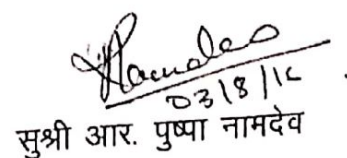 03/8/16
सुश्री आर. पुष्पा नामदेव